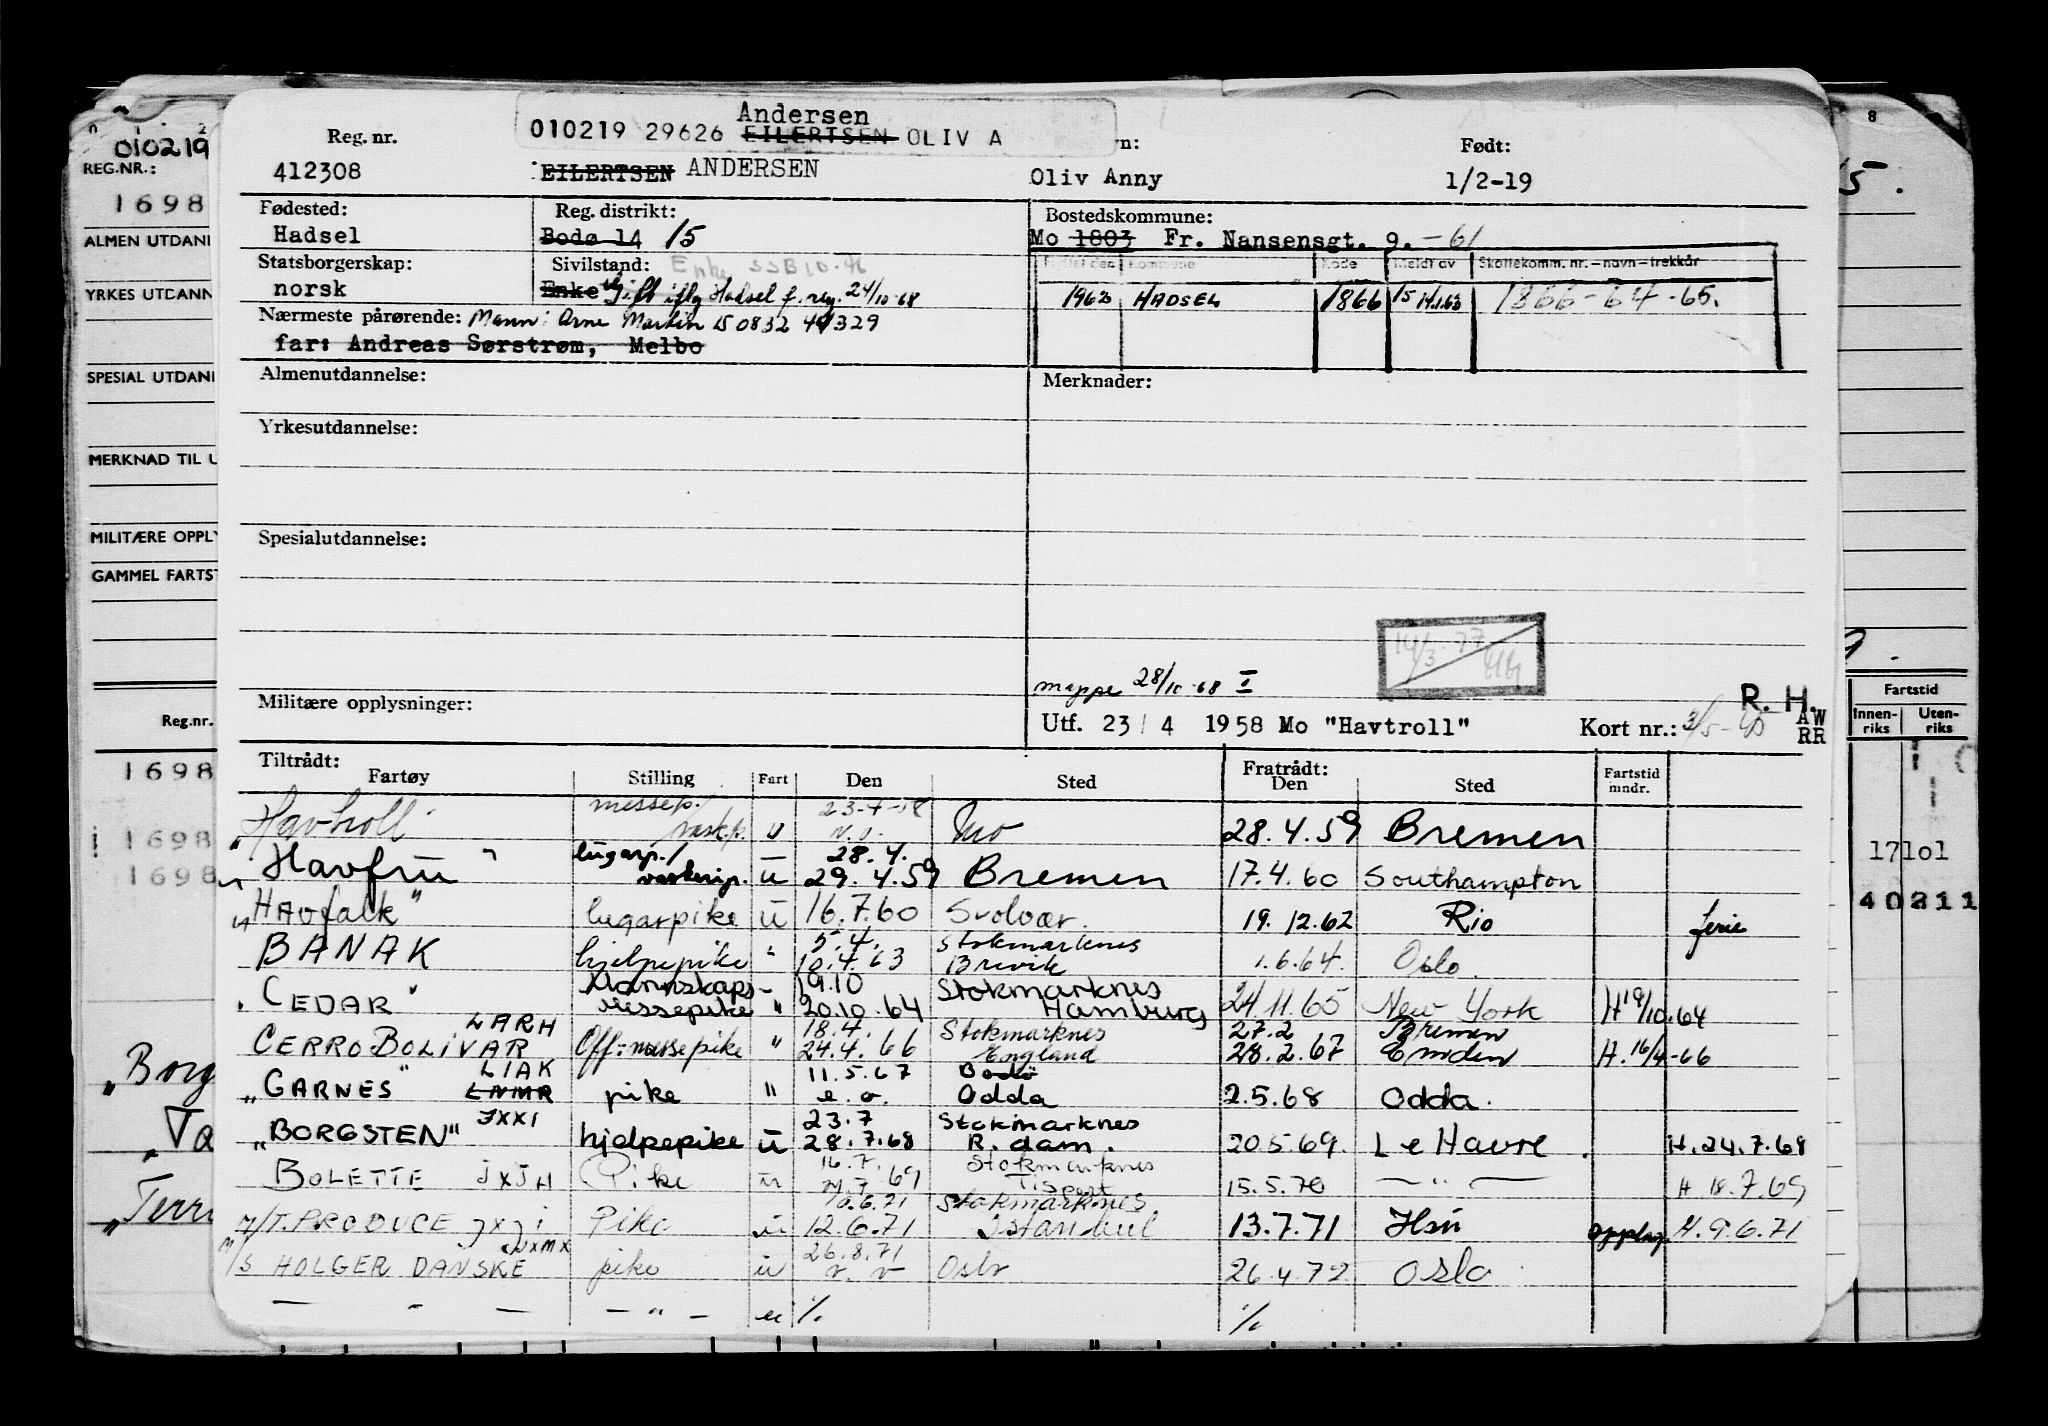 Andersen
010219 29626 EILERTSEN OLIV A
Reg. nr. Født:
412308 EILERTSEN ANDERSEN Oliv Anny 1/2-19
Fødested: Reg. distrikt: Bostedskommune:
Hadsel Bodø 14 15 Mo 1803 Fr. Nansensgt. 9. -61
Statsborgerskap: Sivilstand: Enke SSB 10.76 Meldt den Kommune Kode Meldt av Skattekomm. nr. – navn – trekkår
norsk Enke Gift iflg Hadsel f. reg. 24/10-68 1962 HADSEL 1866 15 14.1.63 1866-64-65.
Nærmeste pårørende: Mann: Arne Martin 150832 44329
far: Andreas Sørstrøm, Melbo
Almenutdannelse: Merknader:
Yrkesutdannelse:
Spesialutdannelse:
14/3-77
mappe 28/10-68 I
R. H.
Militære opplysninger: Utf. 23/4 1958 Mo "Havtroll" Kort nr.: AW
RR
Tiltrådt: Fratrådt:
Fartøy Stilling Fart Den Sted Den Sted Fartstid mndr.
messep. 23-4-58
Havtroll vaskp. u Mo 28.4.59 Bremen
lugarp./ 28.4.
"Havfru" vaskerip. u 29.4.59 Bremen 17.4.60 Southampton
"HAVfalk" lugarpike u 16.7.60 Svolvær 19.12.62 Rio ferie
5.4. Stokmarknes
BANAK hjelpepike " 10.4.63 Brevik 1.6.64. Oslo
Mannskaps- 19.10 Stokmarknes
"CEDAR" messepike " 20.10.64 Hamburg 24.11.65 New York H 19/10.64
LARH 18.4. Stokmarknes 27.2 Bremen
CERRO BOLIVAR Off: messepike " 24.4.66 England 28.2.67 Emden H. 16/4-66
LIAK 11.5.67 Bodø
"GARNES" LNMR pike " e.o. Odda 2.5.68 Odda.
JXXI 23.7 Stokmarknes
"BORGSTEN" hjelpepike u 28.7.68 R.dam. 20.5.69. Le Havre. H. 24.7.68
16.7. Stokmarknes
BOLETTE JXJH Pike u 69 15.5.70 — " — H 18.7.69
10.6.71 Stokmarknes
M/T. PRODUCE JXJI Pike u 12.6.71 Istanbul 13.7.71 Opplag H. 9.6.71
JXMX 26.8.71
M/S HOLGER DANSKE pike u Oslo 26.4.72 Oslo
— " — — " — u % %
010219
REG.NR.:
1698
ALMEN UTDANN
YRKES UTDANN
SPESIAL UTDANN
MERKNAD TIL U
MILITÆRE OPPLY
GAMMEL FARTST
Reg.nr.
1698
1698
1698
"Borg
"Ta
"Terr
8
5.
Fartstid
Innen- Uten-
riks riks
17101
40211